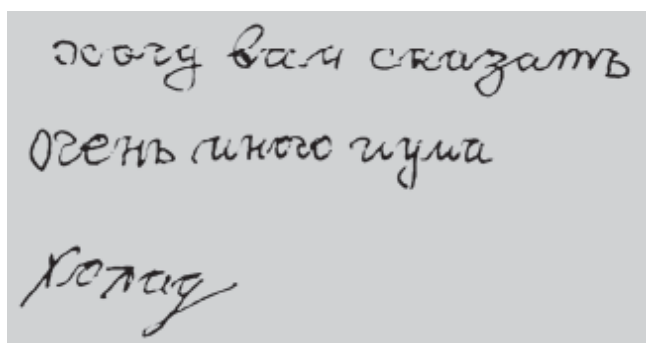 хочу вам сказать
очень много шума
холод